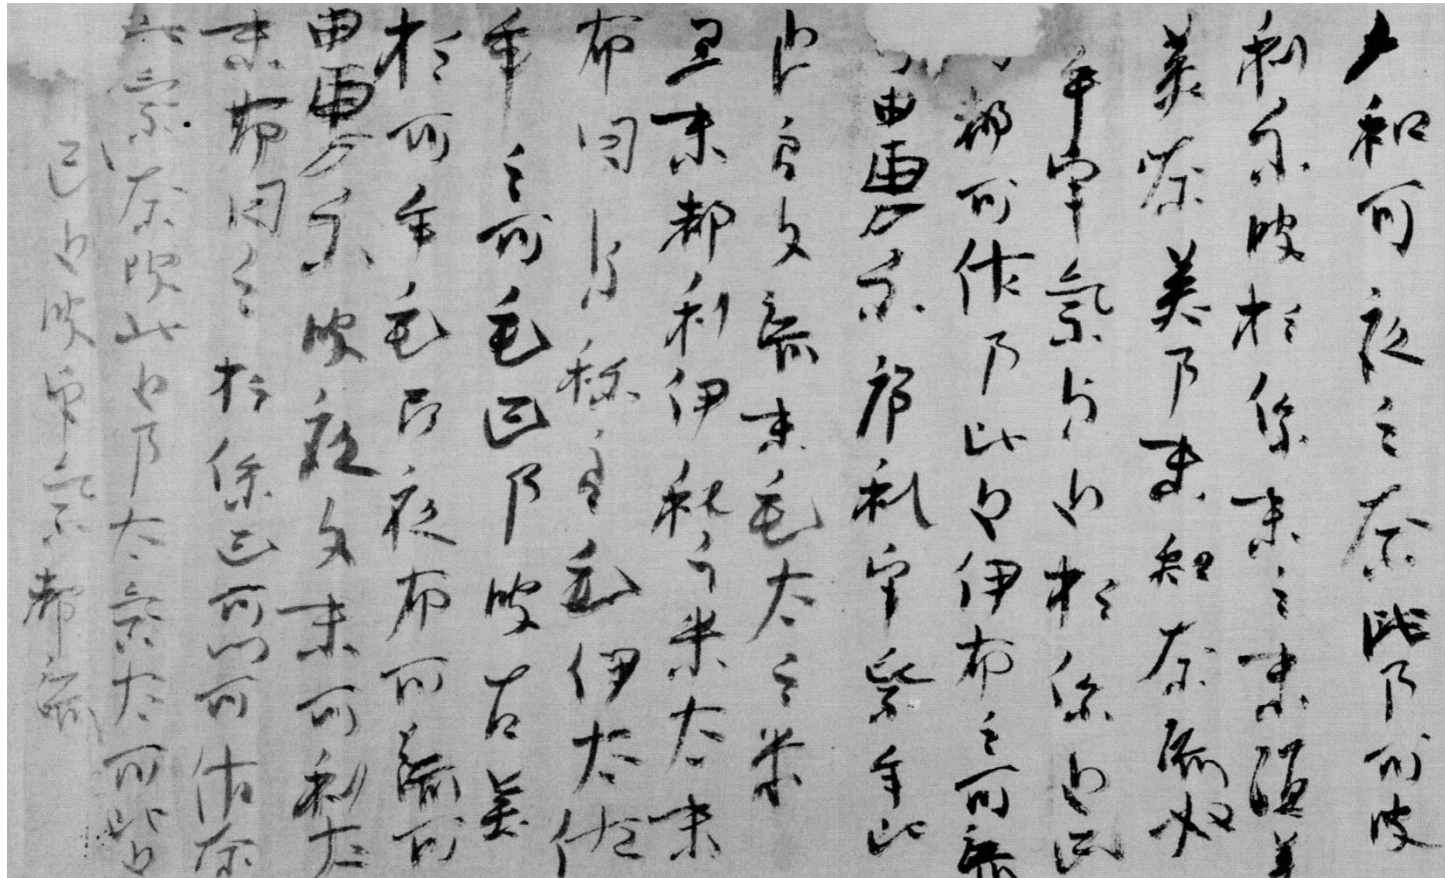 和可夜之奈比乃可波
利尓波於保末之末須美
美奈美乃末知奈流奴
乎宇氣与止於保止己
可都可佐乃比止伊布之可流
可由恵尓序礼宇氣牟比
止良久流末毛太之米
弖末都利伊礼之米太末
布日与祢良毛伊太佐
牟之可毛己乃波古美
於可牟毛阿夜布可流可
由恵尓波夜久末可利太
末布日之於保己可川可佐奈
比氣奈波比止乃太氣太可比止
己止波宇氣都流